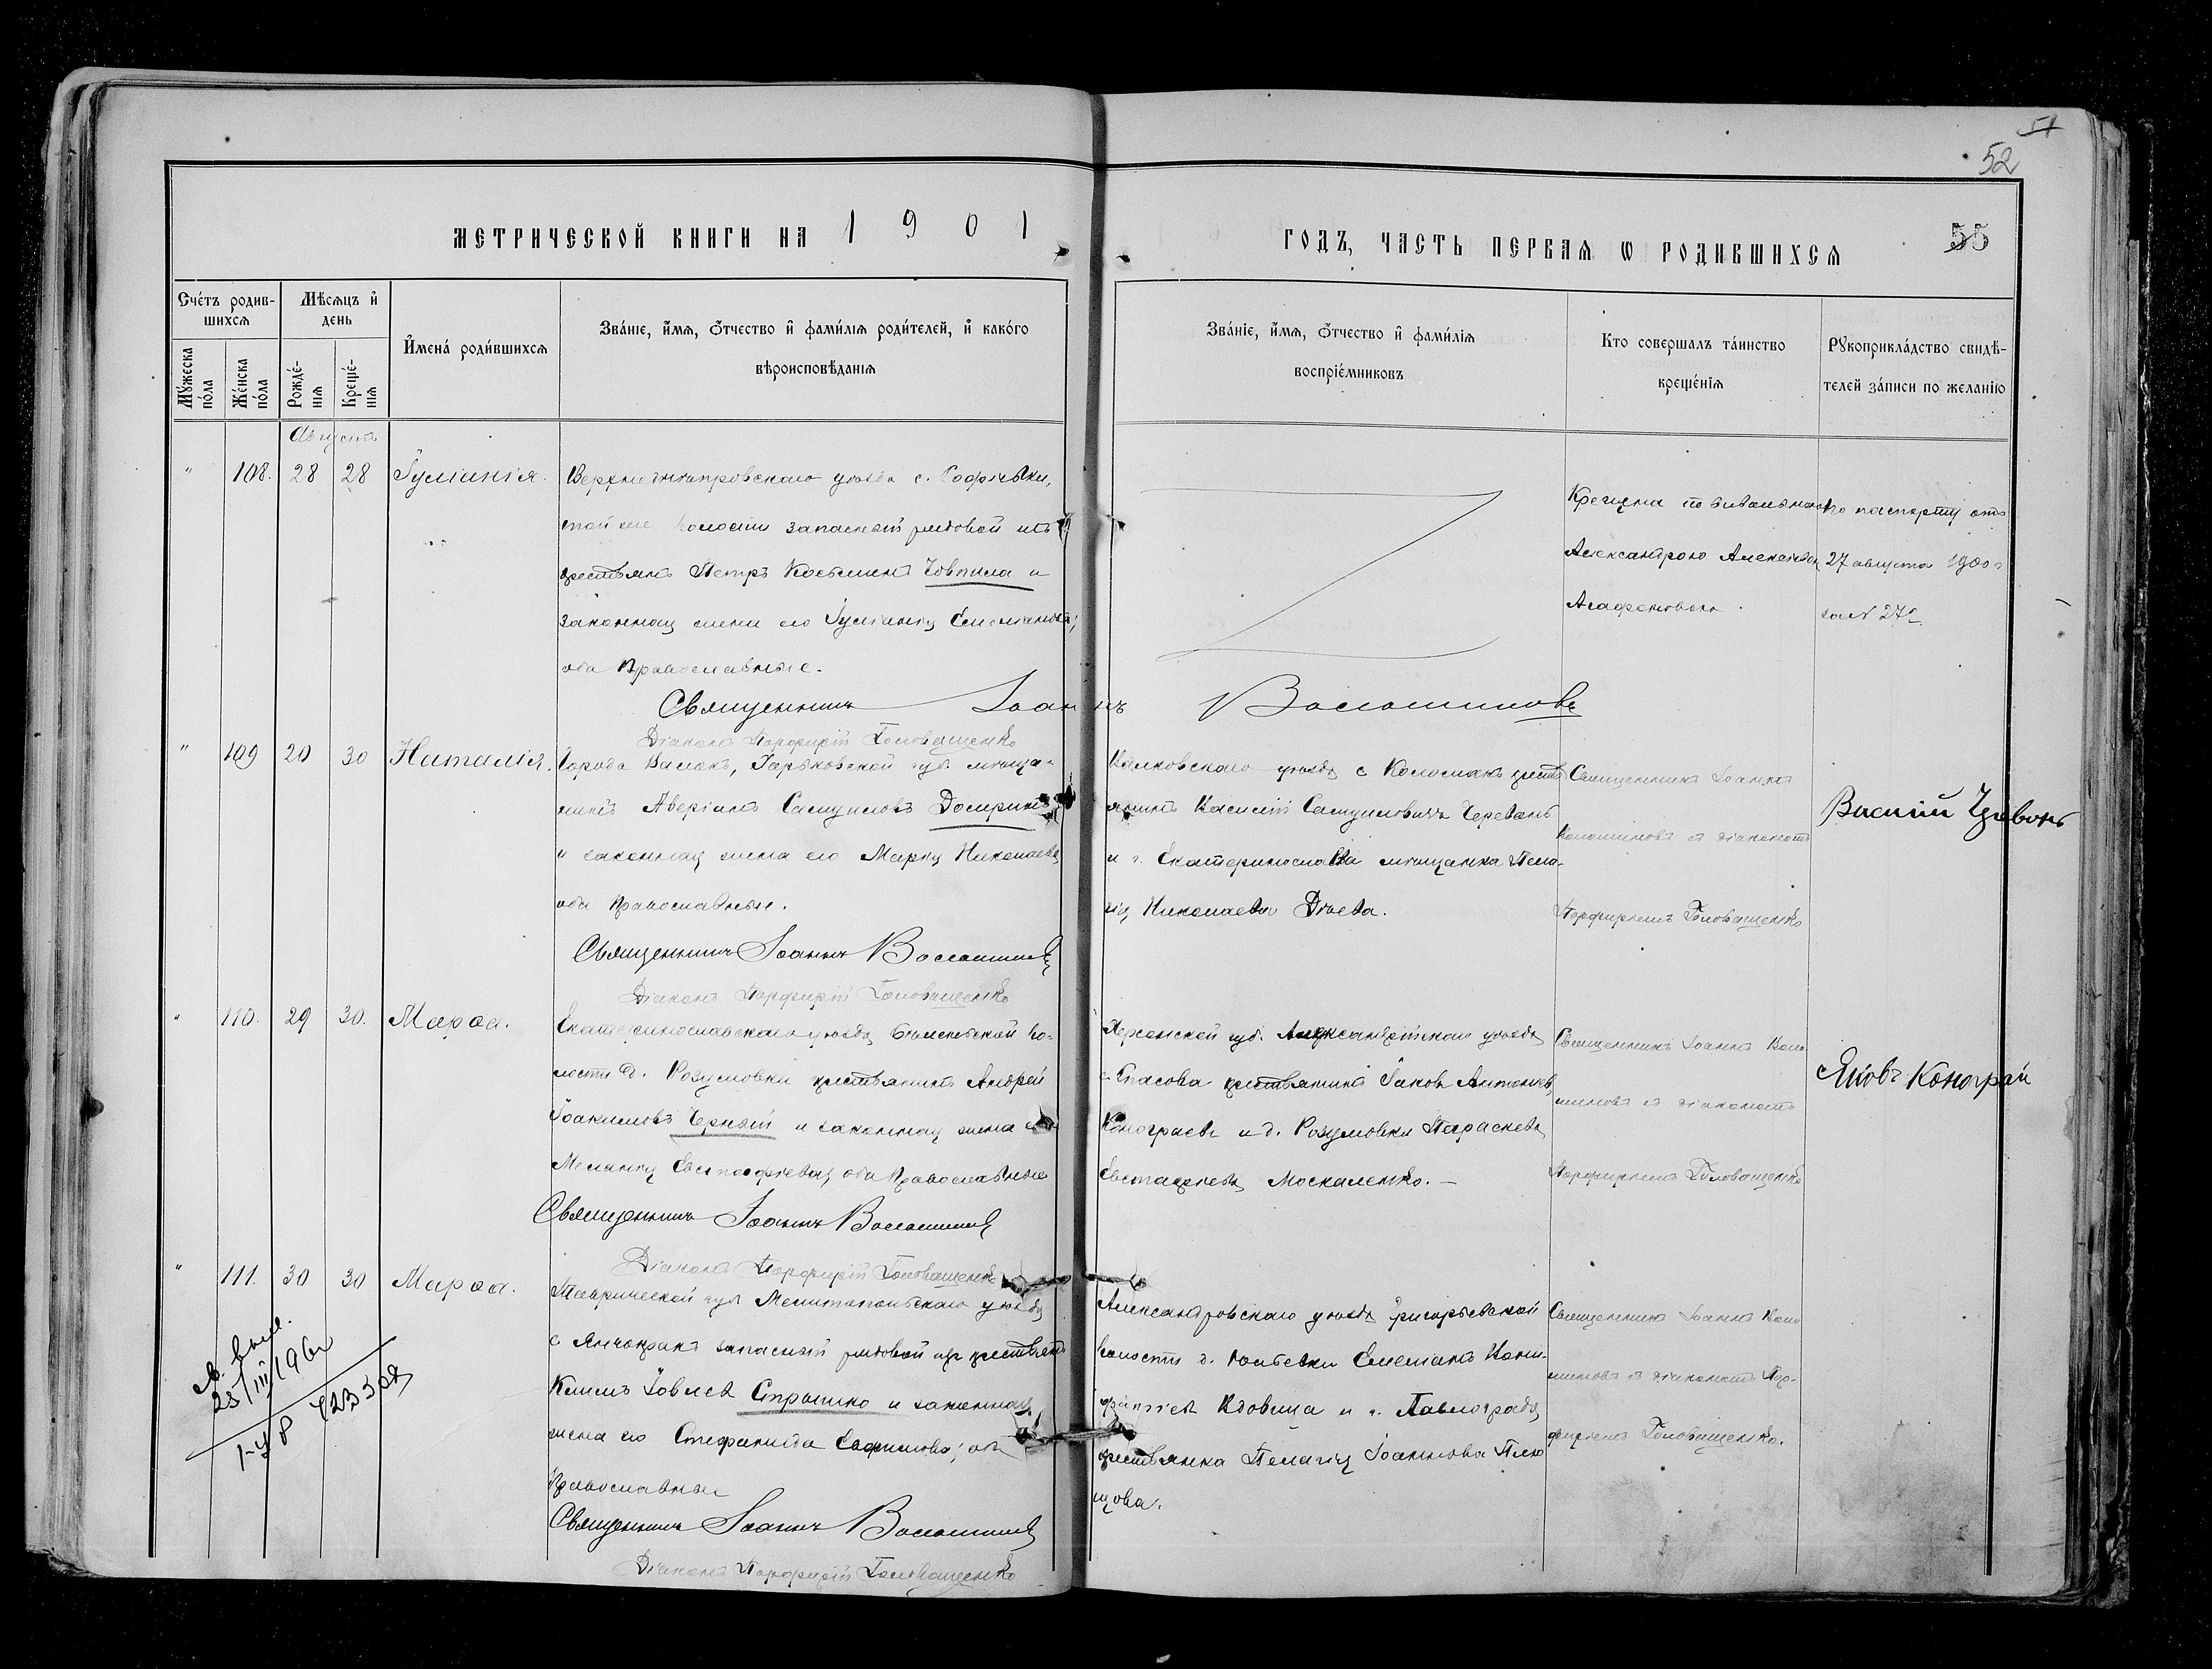 51
52
55
МЕТРИЧЕСКОЙ КНИГИ НА 1901
ГОДЪ, ЧАСТЬ ПЕРВАЯ Ѡ РОДИВШИХСЯ
Счéтъ родив-
шихся
Мужеска пóла
Жéнска пóла
Мѣсяцъ и
день
Рождé-
нія
Крещé-
нія
Именá родившихся
Звáніе, имя, ѻтчество и фамилія родителей, и какóго
вѣроисповѣданія
Звáніе, имя, ѻтчество и фамилія
воспріéмниковъ
Кто совершалъ тáинство
крещéнія
Рукоприклáдство свидѣ-
телей зáписи по желанію
Августъ
" 108. 28 28 Іуліанія.
Верхнеднѣпровскаго уѣзда с. Софіевки,
той же волости запасный рядовой изъ
крестьянъ Петръ Козьминъ Човпила и
законная жена его Іуліанія Емеліанова;
оба Православные.
Священникъ Іоаннъ Волошиновъ
Діаконъ Порфирій Головащенко
Александрою Алексѣевою
Агафоновою
по паспорту отъ
27 августа 1900 г
за №
" 109 20 30 Наталія.
Города Валокъ, Харьковской губ. мѣща-
нинъ Аверіанъ Самуиловъ
и законная жена его Марія Николаева
оба Православные.
Священникъ Іоаннъ Волошиновъ
Діаконъ Порфирій Головащенко
Валковскаго уѣзда с Коломакъ крестья
нинъ Василій Самуиловичъ Череванъ
и г. Екатеринослава мѣщанка Пела-
гія Николаева Дѣева.
Священникъ Іоаннъ
Волошиновъ съ діакономъ
Порфиріемъ Головащенко
Василій
" 110. 29 30. Марѳа.
Екатеринославскаго уѣзда, во-
лости д. Розумовки крестьянинъ Андрей
Іоакимовъ Черный и законная жена его
Меланія Евстафіева, оба Православные
Священникъ Іоаннъ Волошиновъ
Діаконъ Порфирій Головащенко
Херсонской губ. Александрійскаго уѣзда
с. Спасова крестьянинъ Іаковъ Антоніевъ
Конограевъ и д. Розумовки Параскева
Евстафіева Москаленко. —
Священникъ Іоаннъ Воло
шиновъ съ діакономъ
Порфиріемъ Головащенко
Яковъ Конограй
" 111. 30 30 Марѳа.
Таврической губ Мелитопольскаго уѣзда
с Янчокракъ запасный рядовой изъ крестьянъ
Климъ Іовлевъ Стрышко и законная
жена его Стефанида Евфимова; оба
Православные
Священникъ Іоаннъ Волошиновъ
Діаконъ Порфирій Головащенко
Александровскаго уѣзда Григорьевской
волости д. Емеліанъ
Вдовица и г. Павлограда,
крестьянка Пелагія Іоаннова Плю
щова.
Священникъ Іоаннъ Воло
шиновъ съ діакономъ Пор-
фиріемъ Головащенко.